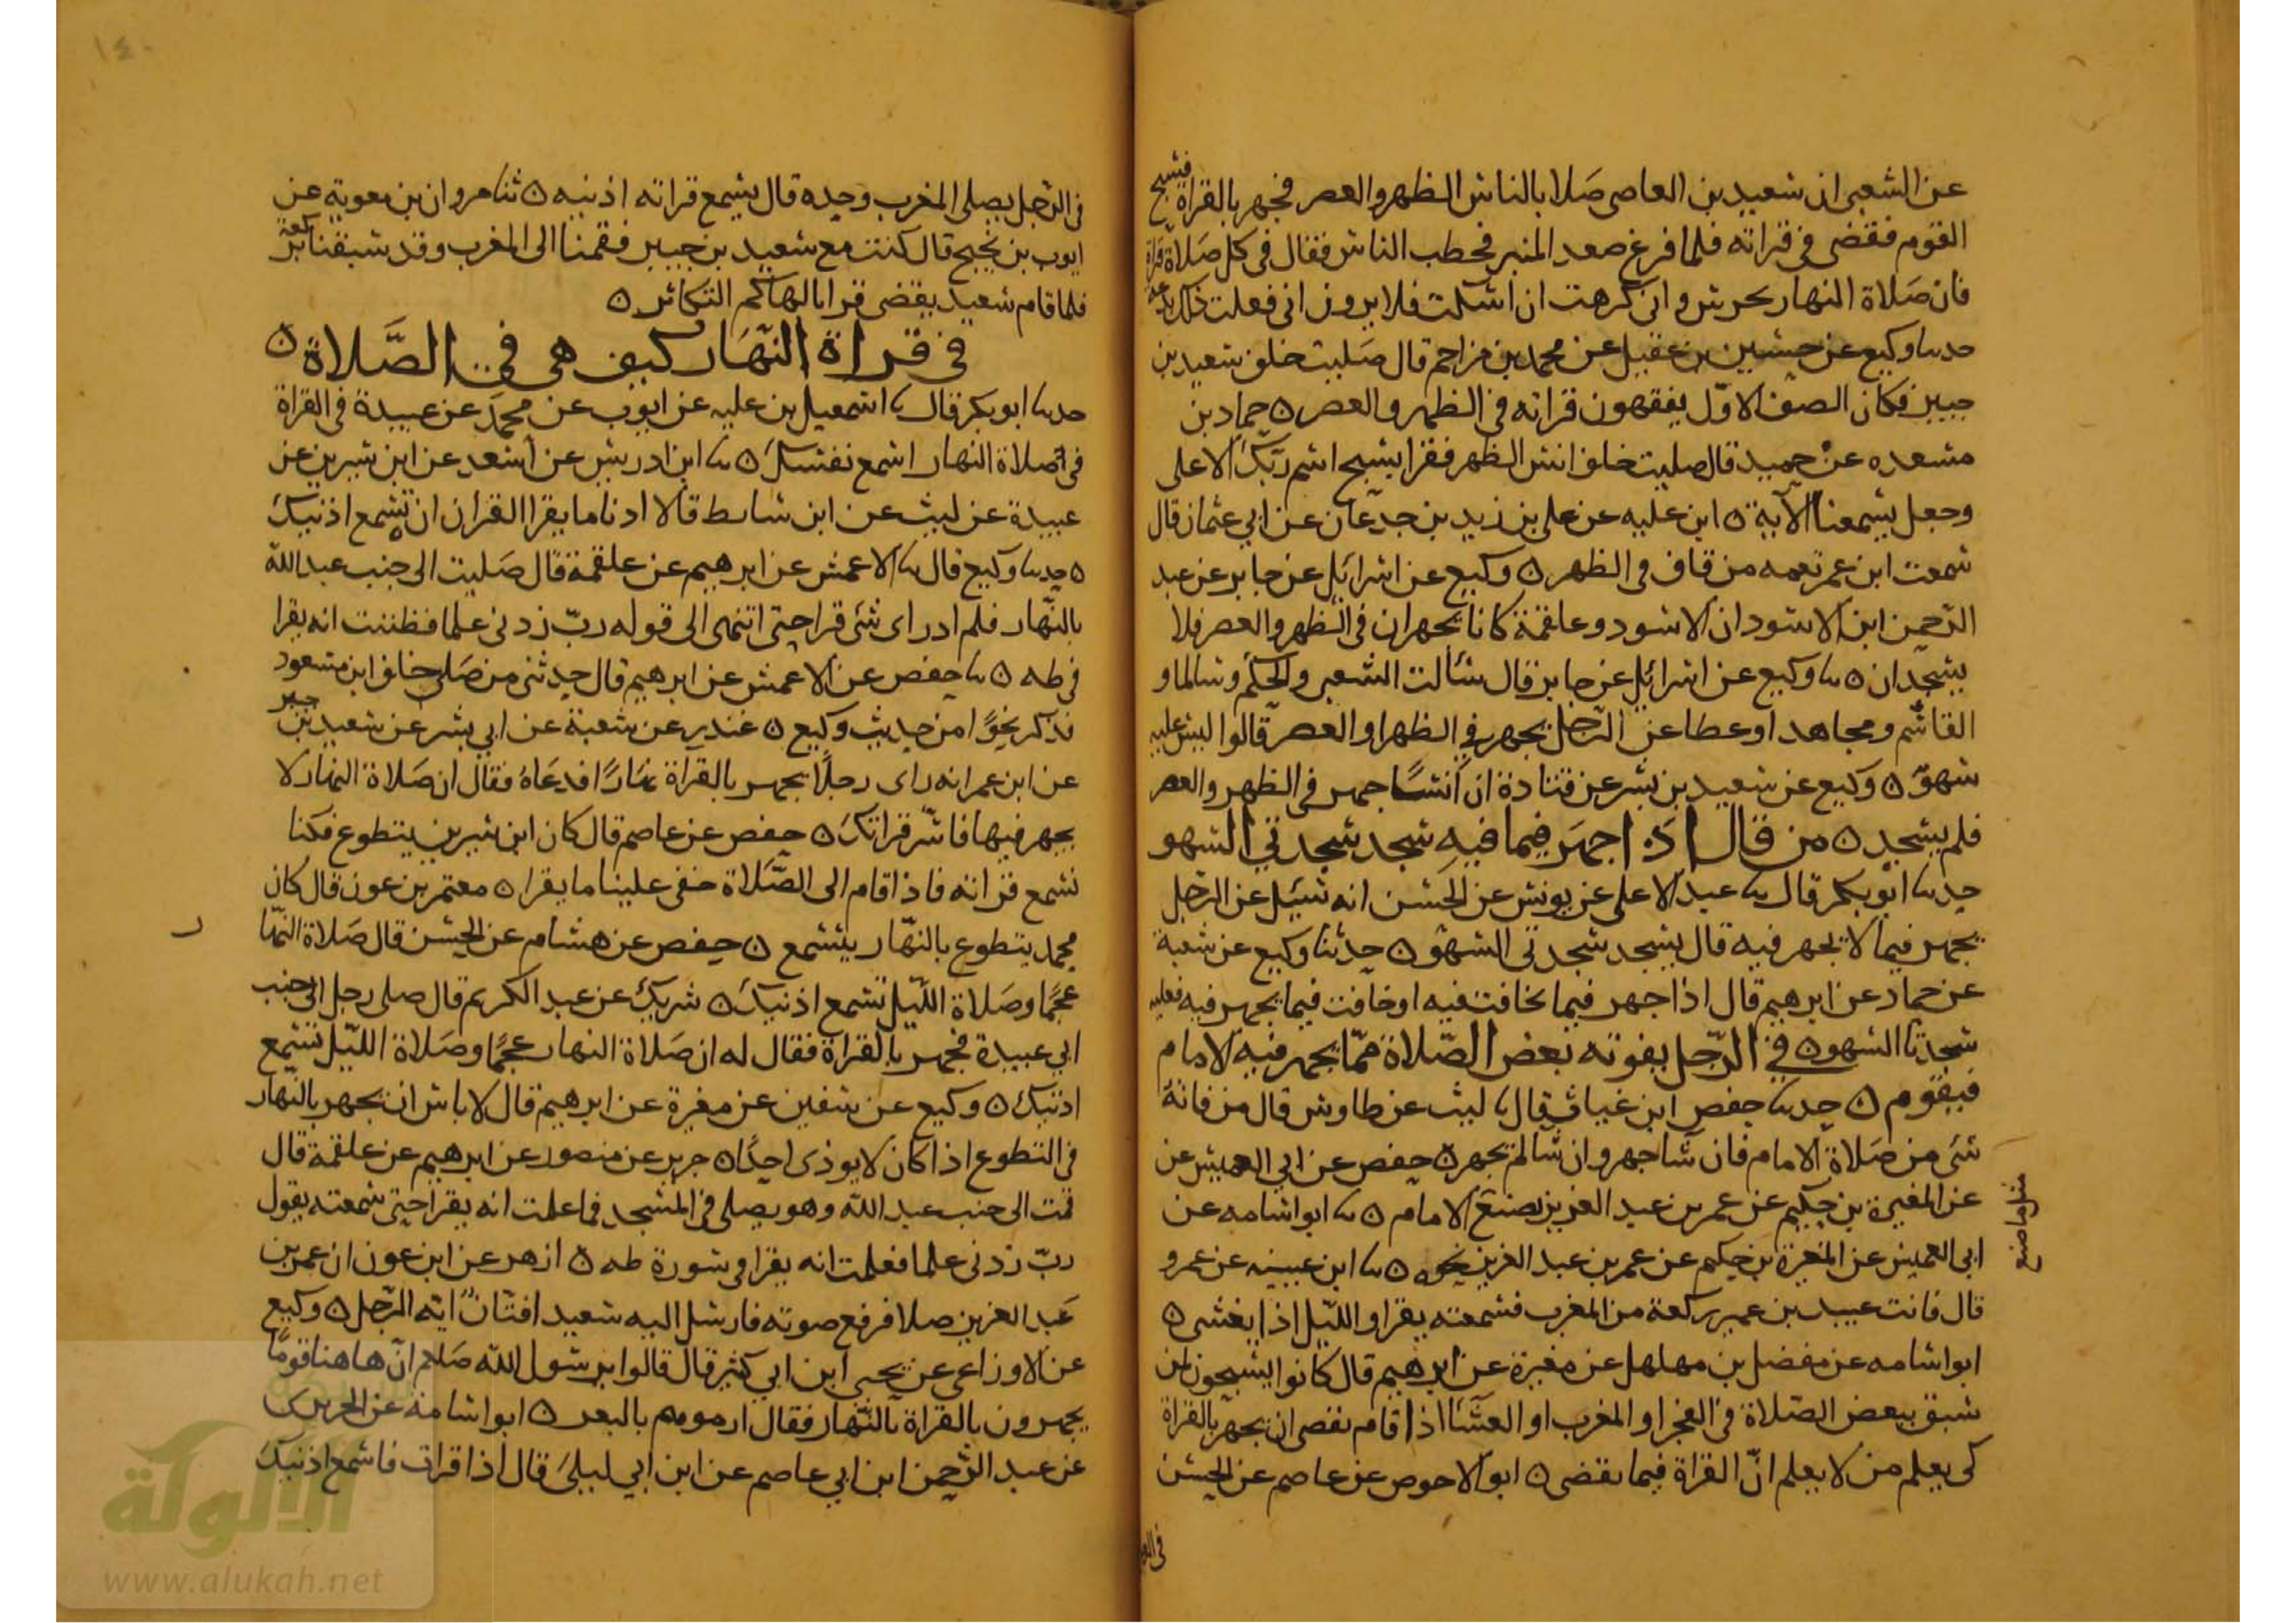 عن الشعبى ان سعيد بن العاصى صَلا بالناس الظهر والعصر فجهر بالقراة فسبح
القوم فمضى فى قراته فلما فرغ صعد المنبر فخطب الناس فقال فى كل صَلاة قراة
فان صَلاة النهار تخرس وانى كرهت ان اسكت فلا يرون انى فعلت ذلك بدعة
حدثنا وكيع عن حسين بن عقيل عن محمد بن مزاحم قال صَليت خلف سعيد بن
جبير فكان الصف الاوّل يفقهون قراته فى الظهر والعصر ٥ حماد بن
مسعده عن حميد قال صليت خلف انس الظهر فقرا بسبح اسم ربّك الاعلى
وجعل يسمعنا الآية ٥ ابن عليه عن على بن زيد بن جدعان عن ابي عثمان قال
سمعت ابن عمر نغمه من قاف فى الظهر ٥ وكيع عن اسرائيل عن جابر عن عبد
الرّحمن ابن الاسود ان الاسود وعلقمة كانا يجهران فى الظهر والعصر فلا
يسجدان ٥ نا وكيع عن اسرائيل عن جابر قال سألت الشعبى والحكم وسالما و
القاسم ومجاهد او عطا عن الرّجل يجهر في الظهر او العصر قالوا ليس عليه
سهوّ ٥ وكيع عن سعيد بن بشر عن قتادة ان أنسًا جهر فى الظهر والعصر
فلم يسجد ٥ من قال اذا جهَر فيما فيه سجد سجدتي السهو
حدثنا ابو بكر قال نا عبد الاعلى عن يونس عن الحسن انه سُئل عن الرجل
يجهر فيما لا يجهر فيه قال يسجد سجدتى السهو ٥ حدثنا وكيع عن شعبة
عن حماد عن ابرهيم قال اذا جهر فيما يخافت فيه او خافت فيما يجهر فيه فعليه
سجدتا السهو ٥ في الرّجل يفوته بعض الصّلاة ممّا يجهر فيه الامام
فيقوم ٥ حدثنا حفص ابن غياث قال نا ليث عن طاوس قال من فاتهُ
شى من صَلاة الامام فان شا جهر وان شا لم يجهر ٥ حفص عن ابى العميس عن
عن المغيرة بن حكيم عن عمر بن عبد العزيز يصنع الامام ٥ نا ابو اسامه عن
مثل ما صنع
ابى العميس عن المغيرة بن حكيم عن عمر بن عبد العزيز نحوه ٥ نا ابن عيينه عن عمرو
قال فاتت عبيد بن عمير ركعة من المغرب فسمعته يقرا والليّل اذا يغشى ٥
ابو اسامه عن مفضل بن مهلهل عن مغيرة عن ابرهيم قال كانوا يستحبون لمن
سبق ببعض الصّلاة فى الفجر او المغرب او العشا اذا قام يقضى ان يجهر بالقراة
كى يعلم من لا يعلم انّ القراة فيما يقضى ٥ ابو الاحوص عن عاصم عن الحسن
١٤٠
فى الرّجل يصلى المغرب وحده قال يسمع قراته اذنيه ٥ ثنا مروان بن معوية عن
ايوب بن نجيح قال كنت مع سعيد بن جبير فقمنا الى المغرب وقد سبقنا بركعة
فلما قام سعيد يقضى قرا بالهاكم التكاثر ٥
فى قراة النّهَار كيف هى في الصَّلاة ٥
حدثنا ابو بكر قال نا اسمعيل بن عليه عن ايوب عن محمّد عن عبيدة فى القراة
فى صلاة النهار اسمع نفسك ٥ نا ابن ادريس عن أشعث عن ابن سيرين عن
عبيدة عن ليث عن ابن سابط قالا ادنا ما يقرا القرآن ان تسمع اذنيك
٥ حدثنا وكيع قال نا الاعمش عن ابرهيم عن علقمة قال صَليت الى جنب عبد اللّه
بالنّهار فلم ادر اى شى قرا حتى انتهى الى قوله ربّ زدنى علما فظننت انه يقرا
فى طه ٥ نا حفص عن الاعمش عن ابرهيم قال حدثنى من صَلى خلف ابن مسعود
فذكر نحوًا من حديث وكيع ٥ غندر عن شعبة عن ابي بشر عن سعيد بن جبير
عن ابن عمر انه راى رجلًا يجهر بالقراة نهارًا فدعَاهُ فقال ان صَلاة النهار لا
يجهر فيها فاسّر قراتكَ ٥ حفص عن عاصم قال كان ابن سيرين يتطوع فكنا
نسمع قراته فاذا قام الى الصَّلاة خفى علينا ما يقرا ٥ معتمر بن عون قال كان
محمد يتطوع بالنّهار يسمع ٥ حفص عن هشام عن الحسن قال صَلاة النّهار
عجمًا وصَلاة اللّيل تسمع اذنيكَ ٥ شريك عن عبد الكريم قال صلى رجل الى جنب
ابي عبيدة فجهر بالقراة فقال له ان صَلاة النهار عجمًا وصَلاة الليّل تسمع
اذنيك ٥ وكيع عن سفين عن مغيرة عن ابرهيم قال لا باس ان يجهر بالنهار
في التطوع اذا كان لا يوذى احدًا ٥ جرير عن منصور عن ابرهيم عن علقمة قال
قمت الى جنب عبد اللّه وهو يصلى فى المسجد فما علمت انه يقرا حتى سمعته يقول
ربّ زدنى علما فعلمت انه يقرا فى سورة طه ٥ ازهر عن ابن عون ان عمر بن
عَبد العزيز صلا فرفع صوته فارسل اليه سعيد افتّانٌ ايّه الرّجل ٥ وكيع
عن الاوزاعى عن يحيى ابن ابي كثير قال قالوا يرسول اللّه صَلعم انّ هاهنا قومًا
يجهرون بالقراة بالنّهار فقال ارموهم بالبعر ٥ ابو اسامة عن الجريرى
عن عبد الرّحمن ابن ابي عاصم عن ابن ابي ليلىَ قال اذا قرات فاسمع اذنيكَ
الألوكة
www.alukah.net